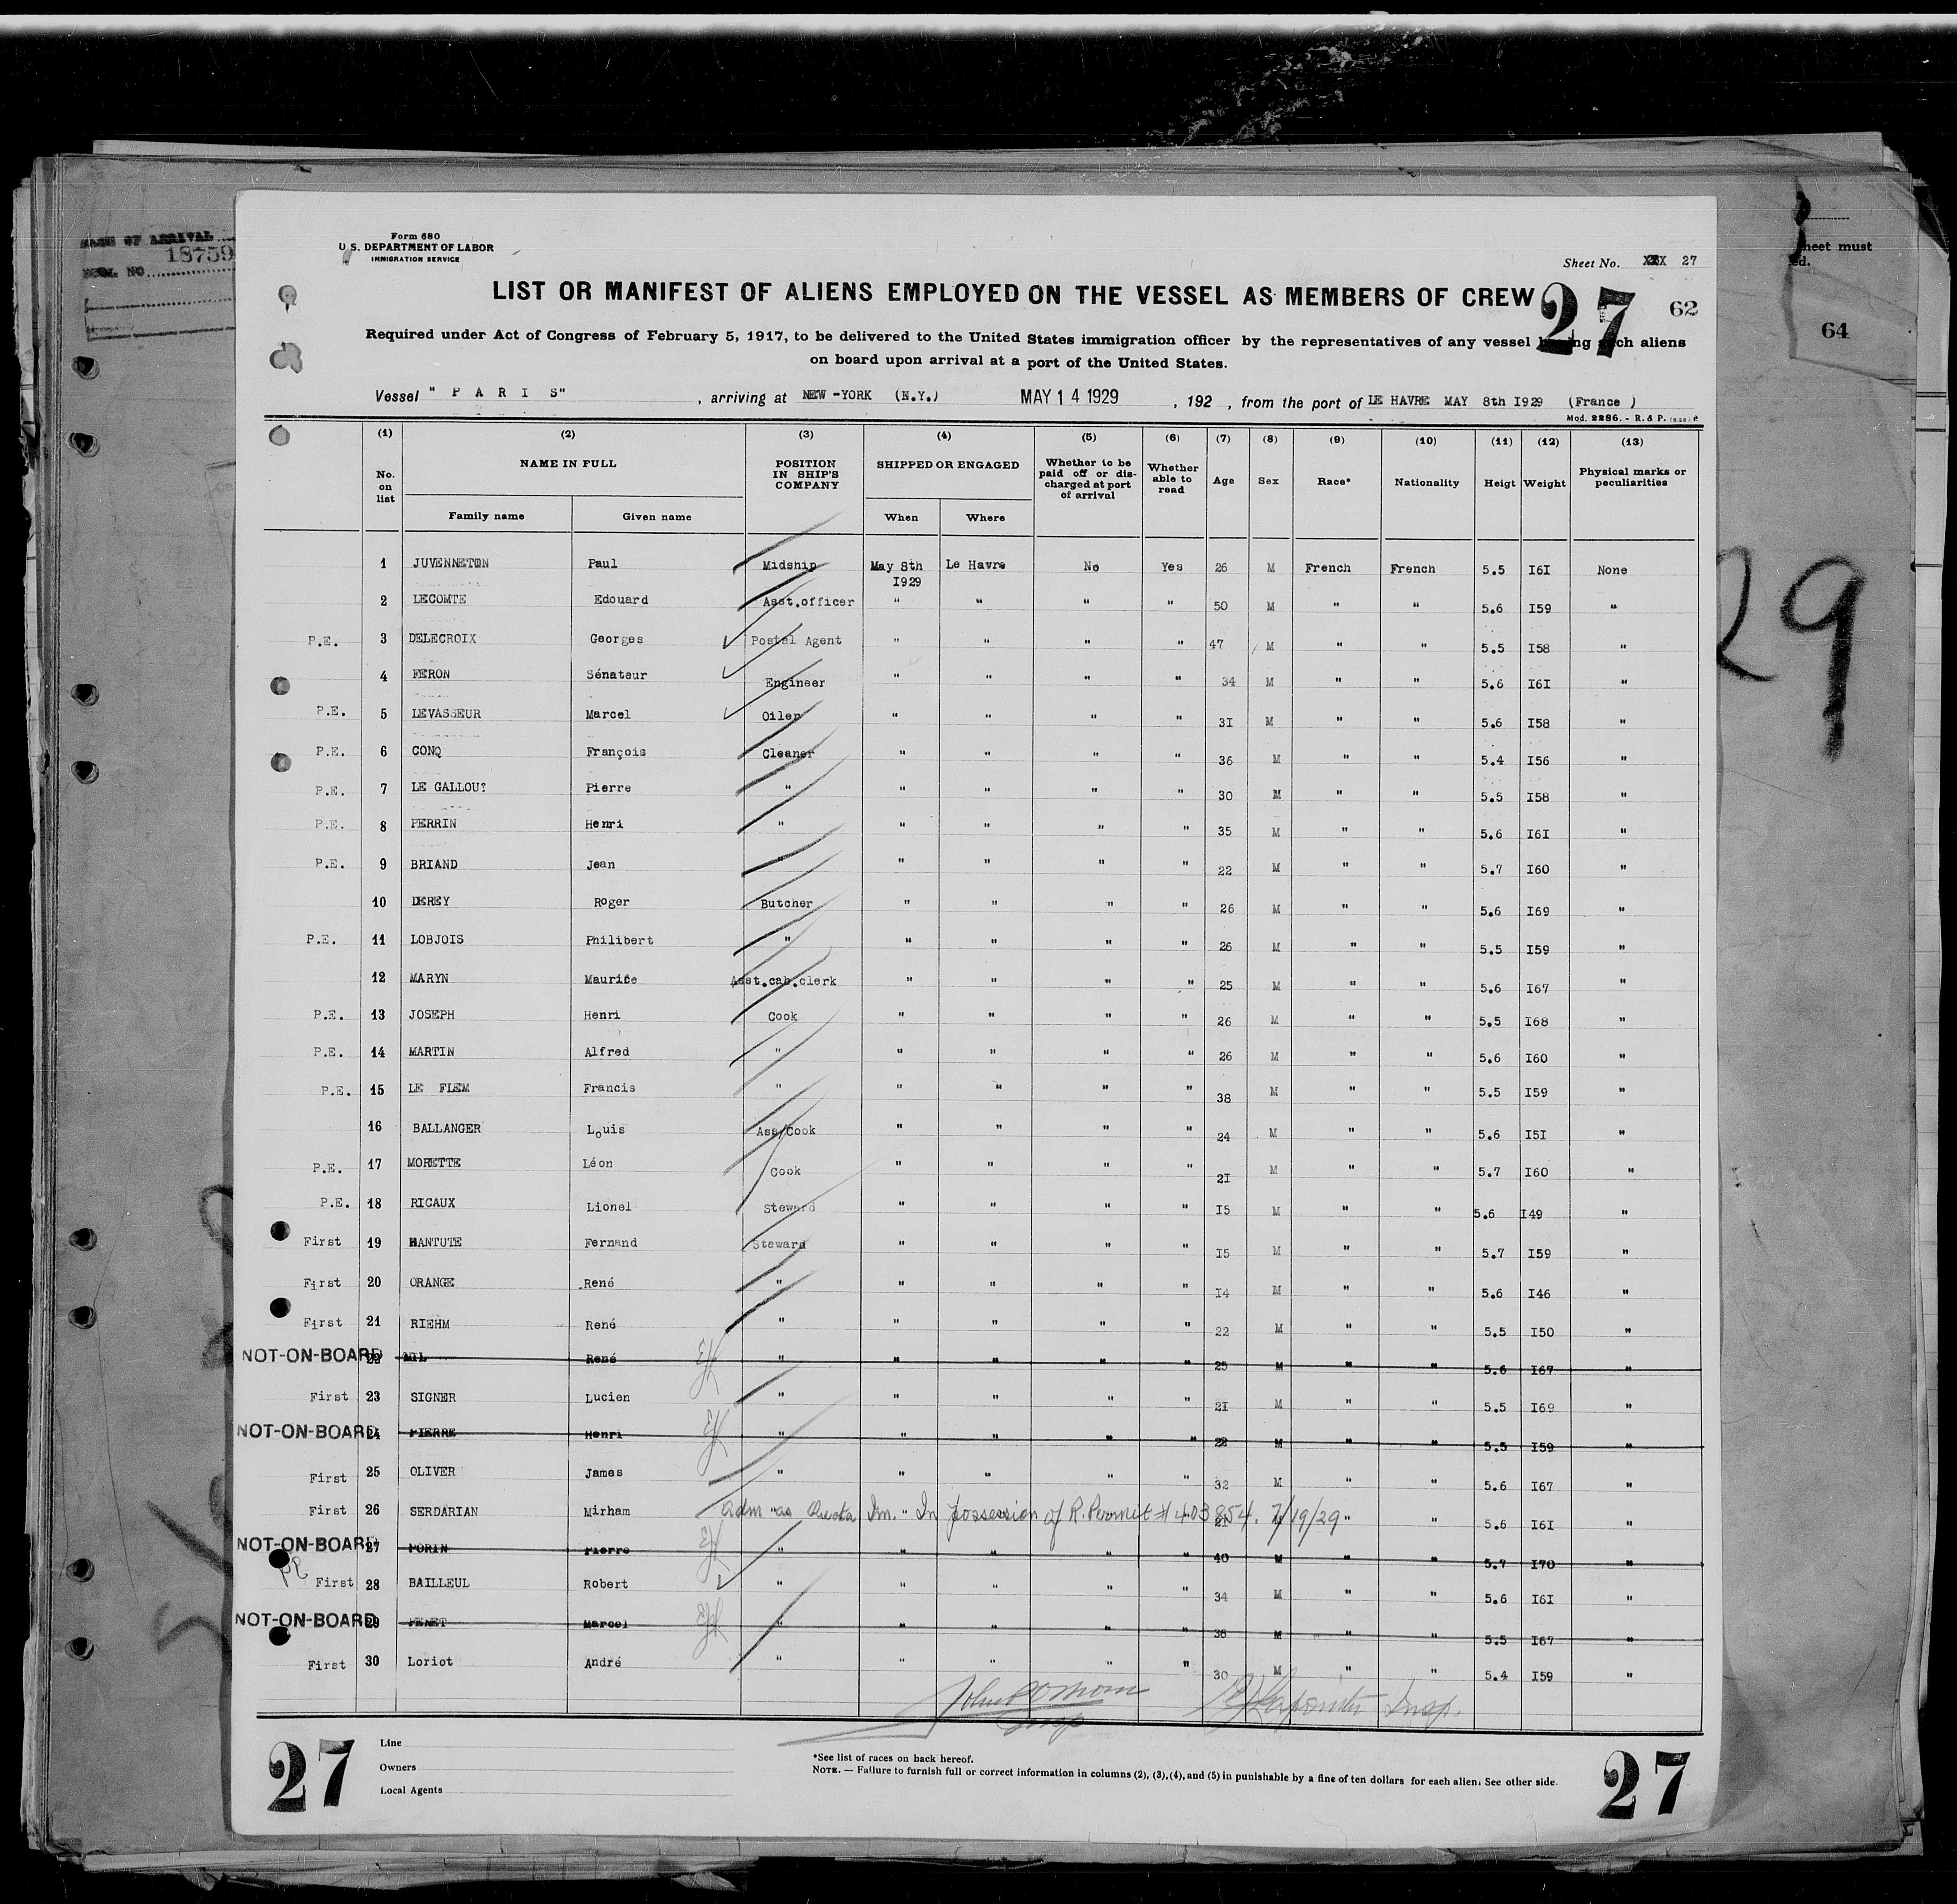 Form 680
U.S. DEPARTMENT OF LABOR
IMMIGRATION SERVICE
18759
heet must
ed.
Sheet No. XXX 27
LIST OR MANIFEST OF ALIENS EMPLOYED ON THE VESSEL AS MEMBERS OF CREW
27 62
64
Required under Act of Congress of February 5, 1917, to be delivered to the United States immigration officer by the representatives of any vessel having such aliens
on board upon arrival at a port of the United States.
Vessel " P A R I S" , arriving at NEW-YORK (N.Y.) MAY 14 1929 , 192 , from the port of LE HAVRE MAY 8th I929 (France )
Mod. 2286. - R. & P.
(1) (2) (3) (4) (5) (6) (7) (8) (9) (10) (11) (12) (13)
No. on list NAME IN FULL POSITION IN SHIP'S COMPANY SHIPPED OR ENGAGED Whether to be paid off or discharged at port of arrival Whether able to read Age Sex Race* Nationality Heigt Weight Physical marks or peculiarities
Family name Given name When Where
1 JUVENNETON Paul Midship May 8th I929 Le Havre No Yes 26 M French French 5.5 I6I None
2 LECOMTE Edouard Asst.officer " " " " 50 M " " 5.6 I59 "
P.E. 3 DELECROIX Georges Postal Agent " " " " 47 M " " 5.5 I58 "
4 FERON Sénateur Engineer " " " " 34 M " " 5.6 I6I "
P.E. 5 LEVASSEUR Marcel Oiler " " " " 3I M " " 5.6 I58 "
P.E. 6 CONQ François Cleaner " " " " 36 M " " 5.4 I56 "
P.E. 7 LE GALLOU? Pierre " " " " " 30 M " " 5.5 I58 "
P.E. 8 PERRIN Henri " " " " " 35 M " " 5.6 I6I "
P.E. 9 BRIAND Jean " " " " " 22 M " " 5.7 I60 "
10 DEREY Roger Butcher " " " " 26 M " " 5.6 I69 "
P.E. 11 LOBJOIS Philibert " " " " " 26 M " " 5.5 I59 "
12 MARYN Maurice Asst.cab.clerk " " " " 25 M " " 5.6 I67 "
P.E. 13 JOSEPH Henri Cook " " " " 26 M " " 5.5 I68 "
P.E. 14 MARTIN Alfred " " " " " 26 M " " 5.6 I60 "
P.E. 15 LE FLEM Francis " " " " " 38 M " " 5.5 I59 "
16 BALLANGER Louis Ass/Cook " " " " 24 M " " 5.6 I5I "
P.E. 17 MORETTE Léon Cook " " " " 2I M " " 5.7 I60 "
P.E. 18 RICAUX Lionel Steward " " " " I5 M " " 5.6 I49 "
First 19 HANTUTE Fernand Steward " " " " I5 M " " 5.7 I59 "
First 20 ORANGE René " " " " " I4 M " " 5.6 I46 "
First 21 RIEHM René " " " " " 22 M " " 5.5 I50 "
NOT-ON-BOARD 22 MIL René " " " " " 25 M " " 5.6 I67 "
First 23 SIGNER Lucien " " " " " 2I M " " 5.5 I69 "
NOT-ON-BOARD 24 PIERRE Henri " " " " " 22 M " " 5.5 I59 "
First 25 OLIVER James " " " " " 32 M " " 5.6 I67 "
First 26 SERDARIAN Mirham adm "as Quota Im." In possession of R. Permit # 403854. 7/19/29 2I M " " 5.6 I6I "
NOT-ON-BOARD 27 PORIN Pierre " " " " " 40 M " " 5.7 I70 "
PE First 28 BAILLEUL Robert " " " " " 34 M " " 5.6 I6I "
NOT-ON-BOARD 29 PENET Marcel " " " " " 38 M " " 5.5 I67 "
First 30 Loriot André " " " " " 30 M " " 5.4 I59 "
Insp Lapointe Insp.
27
Line
Owners
Local Agents
*See list of races on back hereof.
NOTE. — Failure to furnish full or correct information in columns (2), (3), (4), and (5) in punishable by a fine of ten dollars for each alien. See other side.
27
29